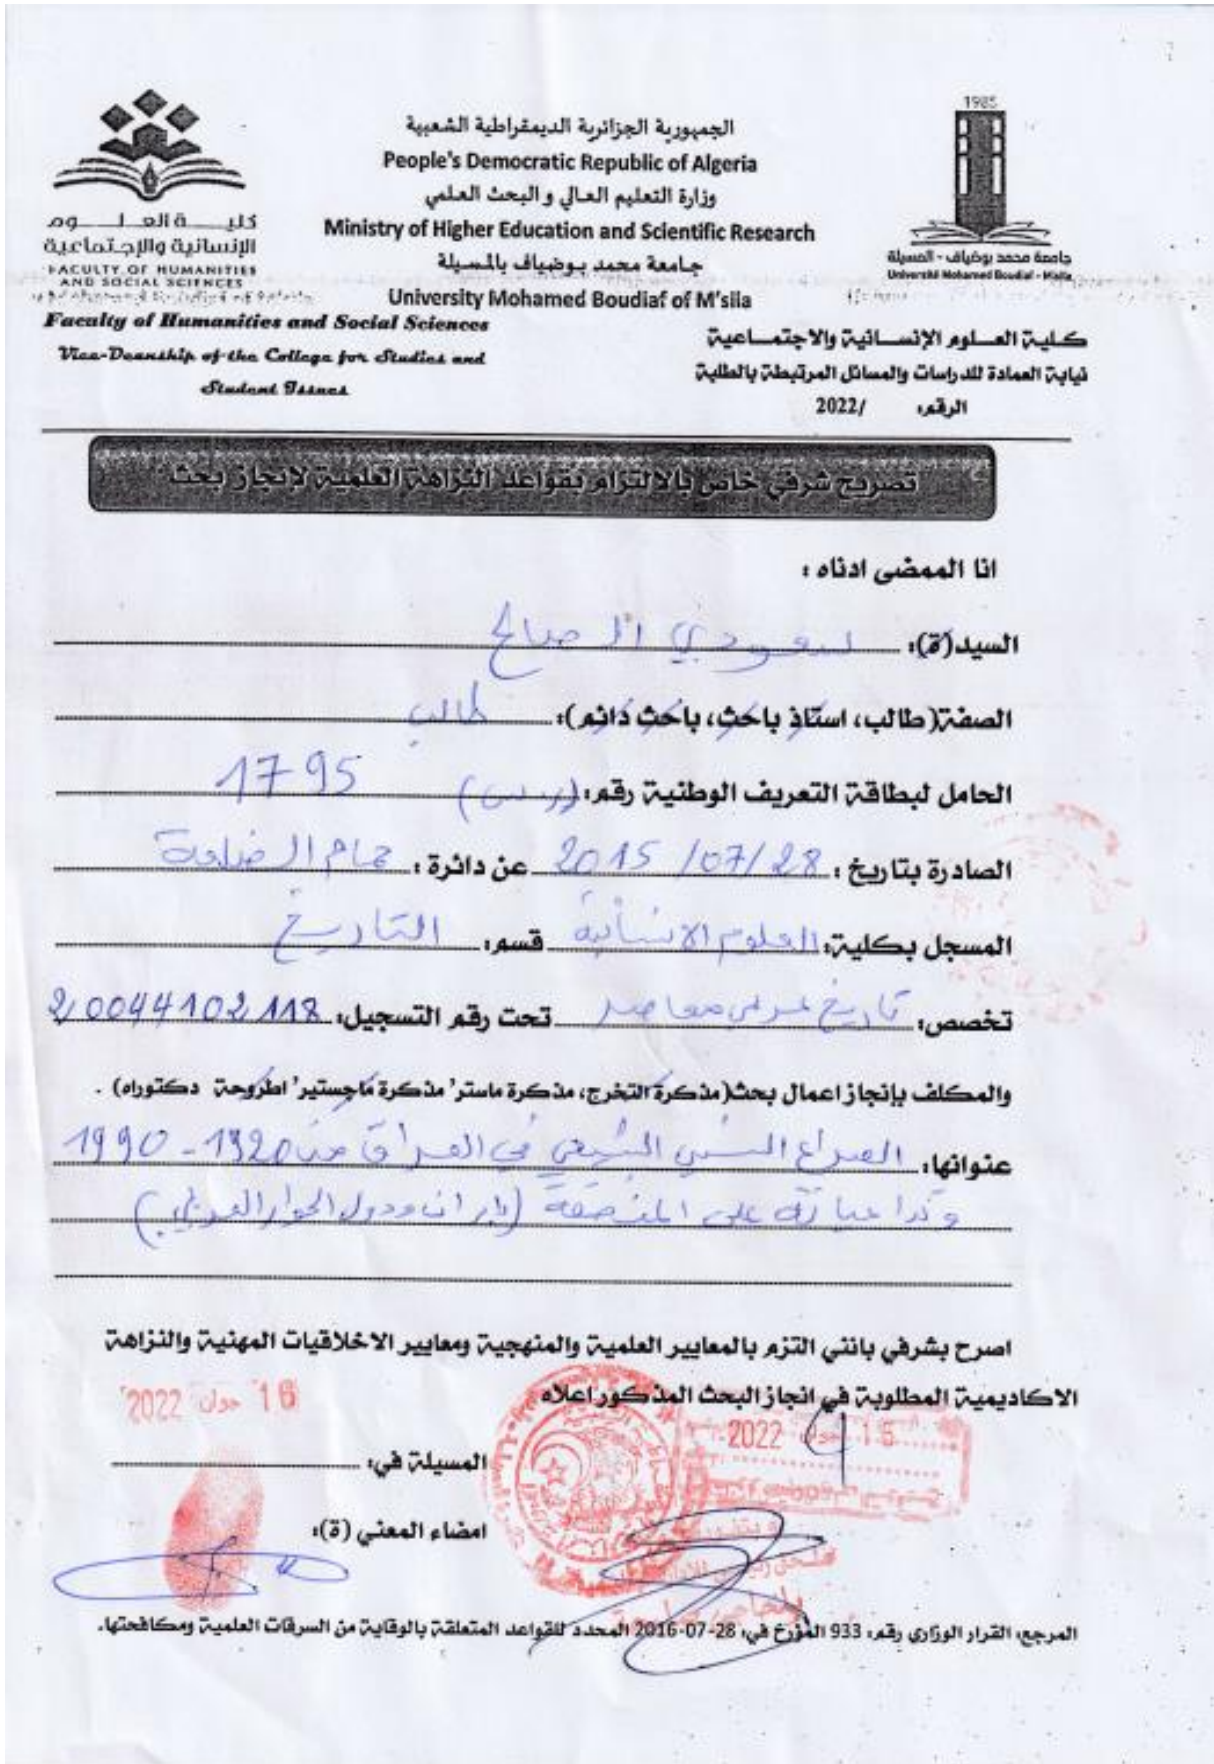 1985
الجمهورية الجزائرية الديمقراطية الشعبية
People's Democratic Republic of Algeria
وزارة التعليم العالي و البحث العلمي
Ministry of Higher Education and Scientific Research
جامعة محمد بوضياف بالمسيلة
University Mohamed Boudiaf of M'sila
كلية العلوم
الإنسانية والإجتماعية
FACULTY OF HUMANITIES
AND SOCIAL SCIENCES
جامعة محمد بوضياف - المسيلة
Université Mohamed Boudiaf - M'sila
Faculty of Humanities and Social Sciences
Vice-Deanship of the College for Studies and
Student Issues
كلية العلوم الإنسانية والاجتماعية
نيابة العمادة للدراسات والمسائل المرتبطة بالطلبة
الرقم: /2022
تصريح شرفي خاص بالالتزام بقواعد النزاهة العلمية لإنجاز بحث
انا الممضى ادناه :
السيد(ة): سعودي الصالح
الصفة( طالب، استاذ باحث، باحث دائم): طالب
الحامل لبطاقة التعريف الوطنية رقم: 1795
الصادرة بتاريخ : 2015 /07/28 عن دائرة : حمام الضلعة
المسجل بكلية: العلوم الانسانية قسم: التاريخ
تخصص: تاريخ عربي معاصر تحت رقم التسجيل:
والمكلف بإنجاز اعمال بحث(مذكرة التخرج، مذكرة ماستر' مذكرة ماجستير' اطروحة دكتوراه) .
عنوانها: الصراع السني الشيعي في العراق من 1920 - 1990
وتداعياته على المنطقة (إيران ودول الجوار العربي)
اصرح بشرفي بانني التزم بالمعايير العلمية والمنهجية ومعايير الاخلاقيات المهنية والنزاهة
الاكاديمية المطلوبة في انجاز البحث المذكور اعلاه
16 جوان 2022
المسيلة في:
امضاء المعني (ة):
المرجع: القرار الوزاري رقم: 933 المؤرخ في: 28-07-2016 المحدد للقواعد المتعلقة بالوقاية من السرقات العلمية ومكافحتها.